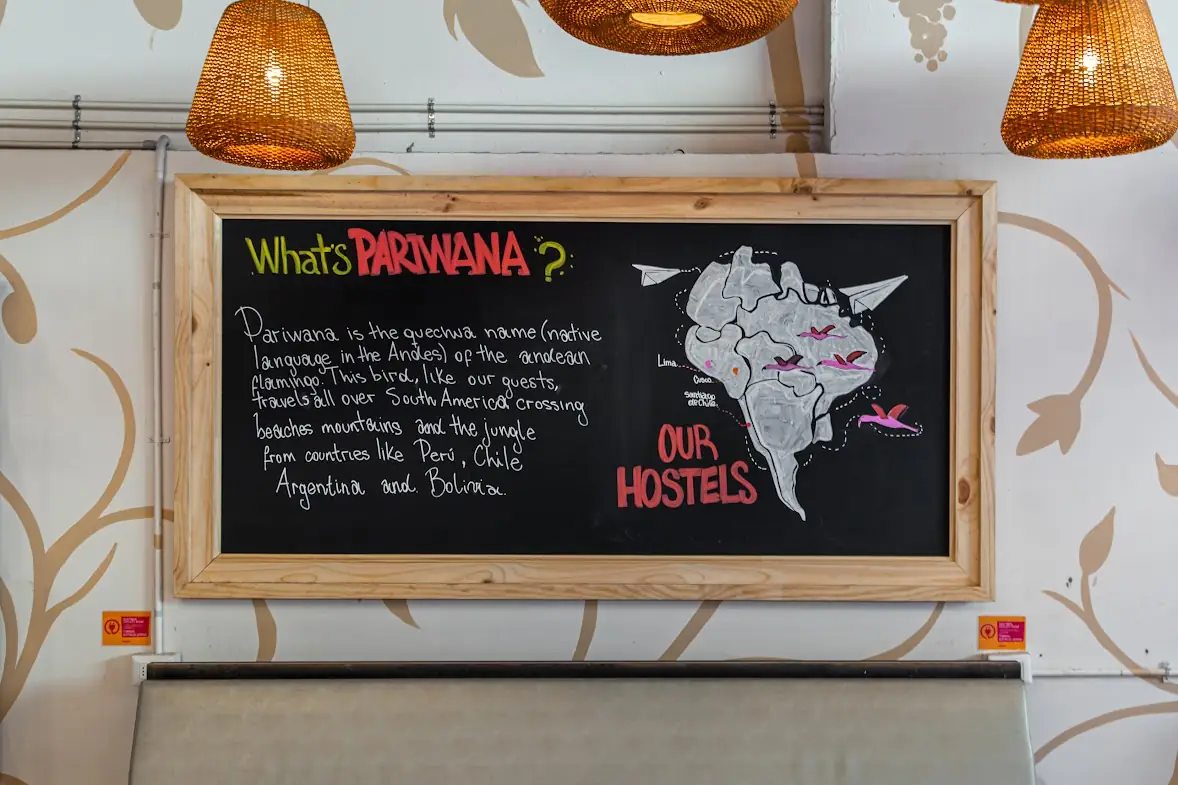 What's PARIWANA ?
Pariwana is the quechua name (native
language in the Andes) of the andean
flamingo. This bird, like our guests,
travels all over South America crossing
beaches mountains and the jungle
from countries like Perú, Chile
Argentina and. Bolivia.
Lima
Cusco
Santiago
de Chile
OUR
HOSTELS